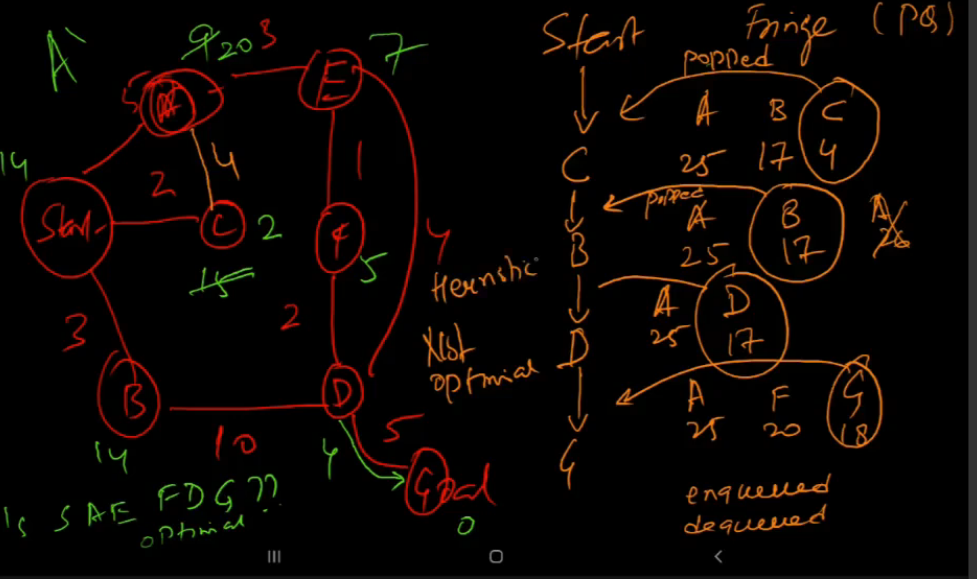 A*
9 20 3
7
Start
Fringe (PQ)
popped
5 A
E
14
4
1
A B C
25 17 4
2
Start
C 2
C
15
F
5
4
popped
A B A
25 17 26
B
Heuristic
3
2
A D
25 17
Not
optimal
D
B
10
D
5
14
4
Goal
0
A F G
25 20 18
G
Is SAEFDG??
optimal
enqueued
dequeued